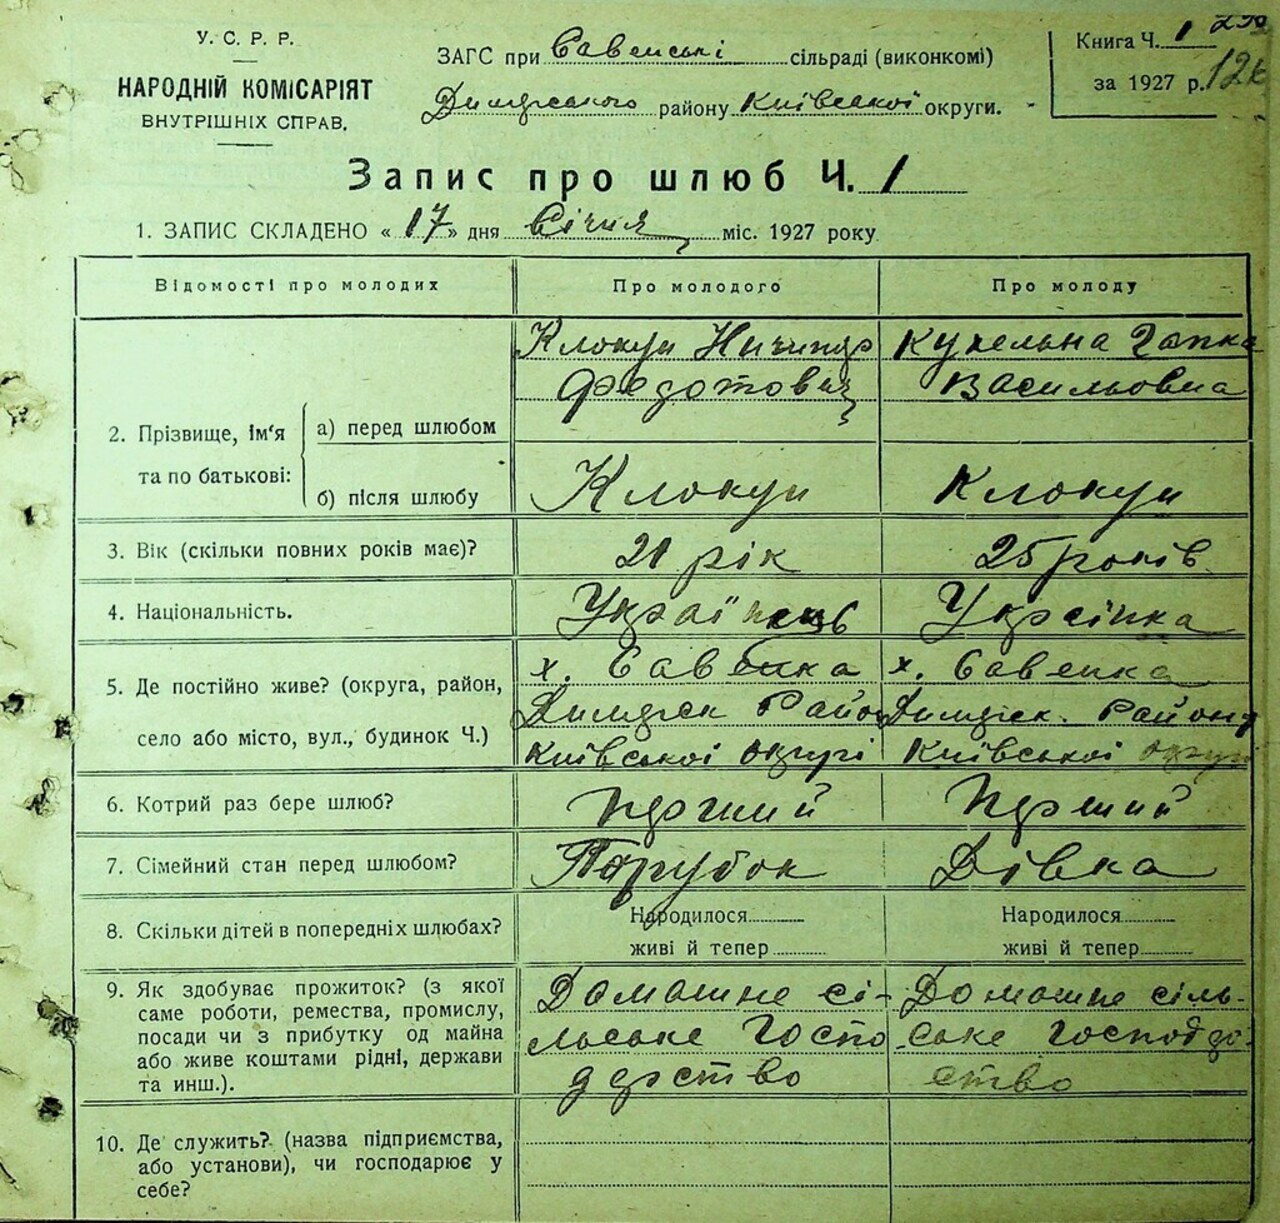 У. С. Р. Р.
НАРОДНІЙ КОМІСАРІЯТ
ВНУТРІШНІХ СПРАВ.
ЗАГС при Савенські сільраді (виконкомі)
Димерського району Київської округи.
Книга Ч. 1
за 1927 р.
Запис про шлюб Ч. 1
1. ЗАПИС СКЛАДЕНО « 17 » дня Січня міс. 1927 року
Відомості про молодих
Про молодого
Про молоду
2. Прізвище, ім'я
та по батькові:
а) перед шлюбом
Клокун Ничипор
Федотович
Кухельна Гапка
Васильовна
б) після шлюбу
Клокун
Клокун
3. Вік (скільки повних років має)?
21 рік
25 років
4. Національність.
Українець
Українка
5. Де постійно живе? (округа, район,
село або місто, вул., будинок Ч.)
х. Савенка
Димерск Район
Київської округі
х. Савенка
Димерск. Району
Київської округі
6. Котрий раз бере шлюб?
Перший
Перший
7. Сімейний стан перед шлюбом?
Парубок
Дівка
8. Скільки дітей в попередніх шлюбах?
Народилося
живі й тепер
Народилося
живі й тепер
9. Як здобуває прожиток? (з якої
саме роботи, ремества, промислу,
посади чи з прибутку од майна
або живе коштами рідні, держави
та инш.).
Домашне сі-
льське Госпо
дарство
Домашне сіль-
ське господар
ство
10. Де служить? (назва підприємства,
або установи), чи господарює у
себе?